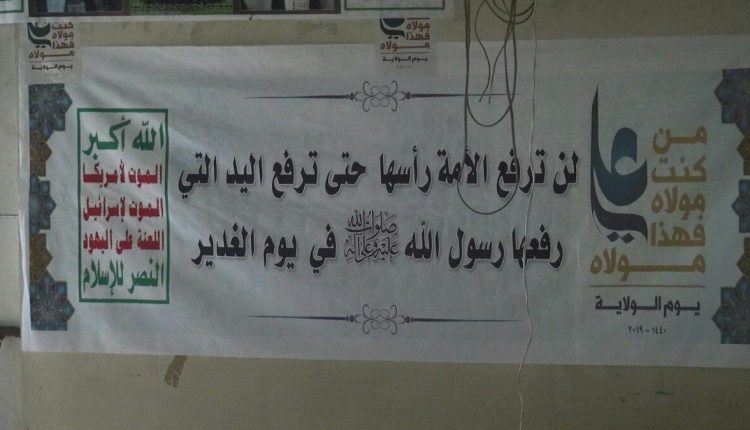 كنت
مولاه
فهذا
مولاه
يوم الولاية
كنت
مولاه
فهذا
مولاه
يوم الولاية
من
كنت
مولاه
فهذا
علي
مولاه
يوم الولاية
١٤٤٠ - ٢٠١٩
لن ترفع الأمة رأسها حتى ترفع اليد التي
رفعها رسول الله صلوات الله عليه وعلى آله في يوم الغدير
الله أكبر
الموت لأمريكا
الموت لإسرائيل
اللعنة على اليهود
النصر للإسلام